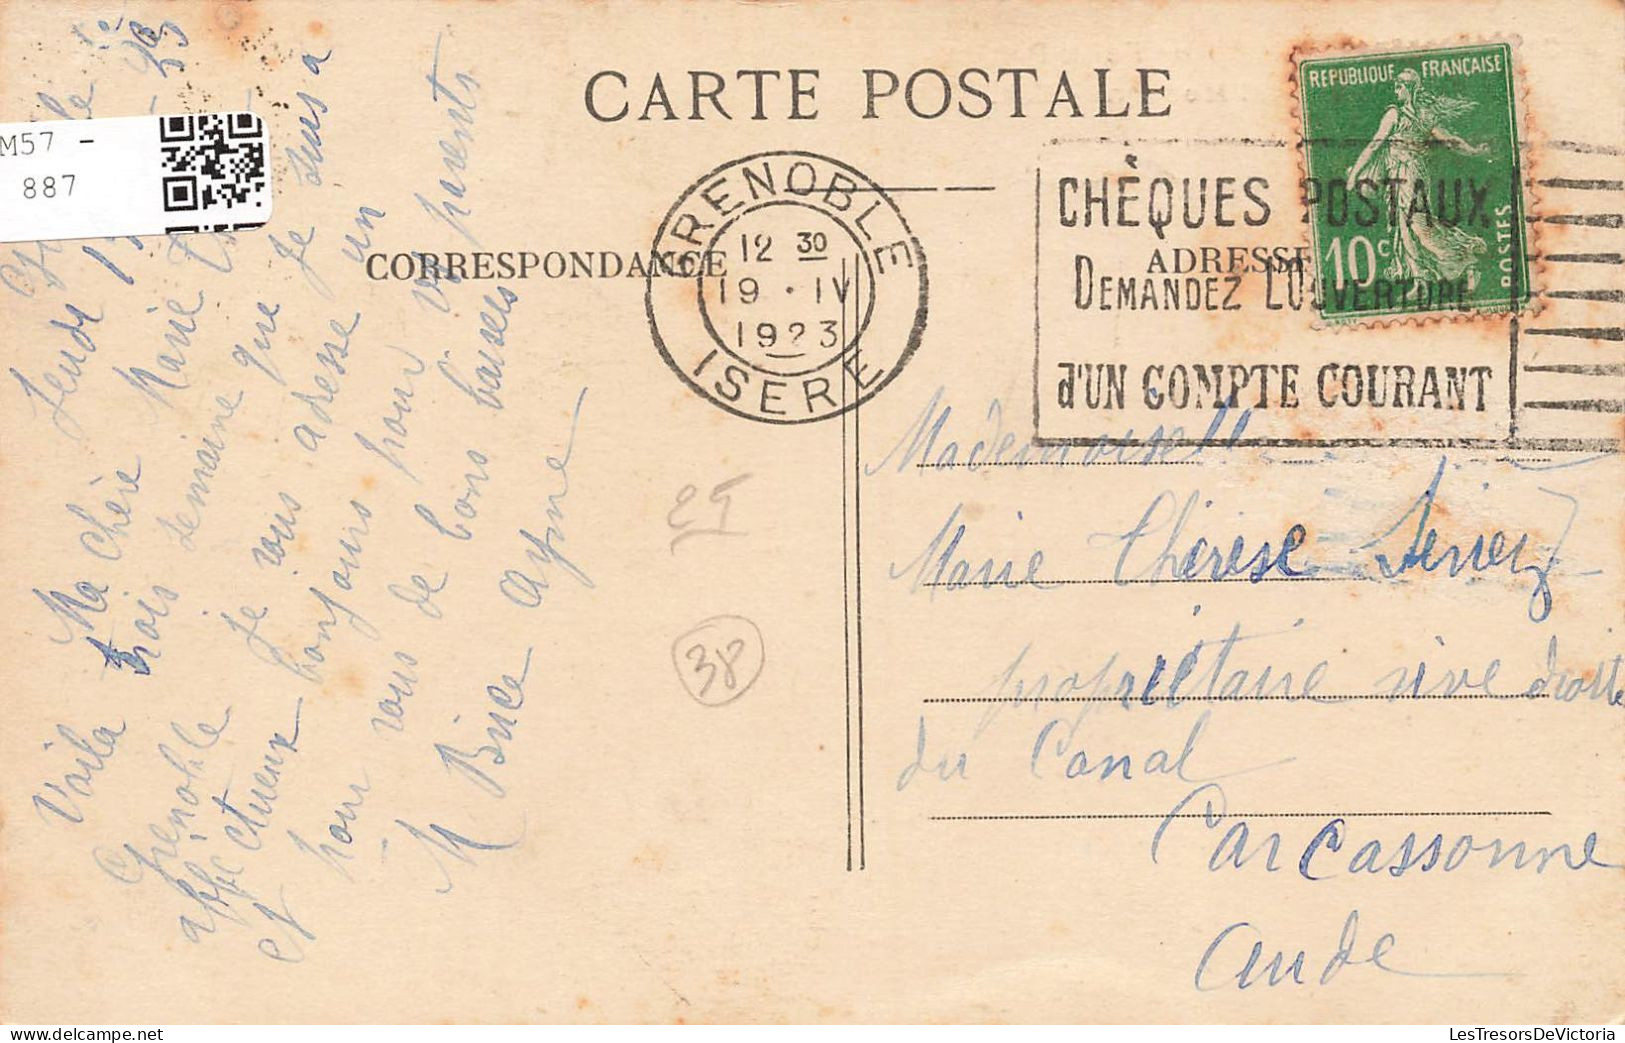 CARTE POSTALE
CORRESPONDANCE
ADRESSE
M57 -
887
GRENOBLE
12 30
19 · IV
1923
ISERE
CHÈQUES POSTAUX
DEMANDEZ L'OUVERTURE
d'UN COMPTE COURANT
REPUBLIQUE FRANÇAISE
10c
POSTES
Jeudi 19
Ma Chère Marie
Voila trois semaine que Je suis a
Grenoble Je vous adresse un
affectueux bonjours pour vos parents
et pour vous de bons baisers
25
38
Mademoiselle
Marie Thérèse
propriétaire rive droitte
du Canal
Carcassonne
Aude
LesTresorsDeVictoria
www.delcampe.net